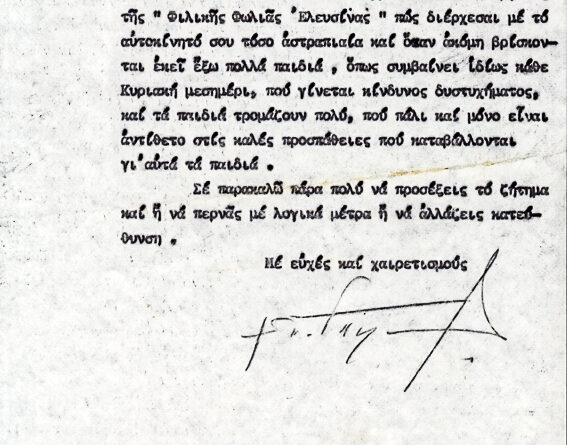 τῆς " Φιλικῆς Φωλιᾶς Ἐλευσίνας " πώς διέρχεσαι μέ τό
αὐτοκίνητό σου τόσο ἀστραπιαῖα καί ὅταν ἀκόμη βρίσκον-
ται ἐκεῖ ἔξω πολλά παιδιά , ὅπως συμβαίνει ἰδίως κάθε
Κυριακή μεσημέρι, πού γίνεται κίνδυνος δυστυχήματος,
καί τά παιδιά τρομάζουν πολύ, πού πάλι καί μόνο εἶναι
ἀντίθετο στίς καλές προσπάθειες πού καταβάλλονται
γι'αὐτά τά παιδιά .
Σέ παρακαλῶ πάρα πολύ νά προσέξεις τό ζήτημα
καί ἤ νά περνᾶς μέ λογικά μέτρα ἤ νά ἀλλάζεις κατεύ-
θυνση .
Μέ εὐχές καί χαιρετισμούς